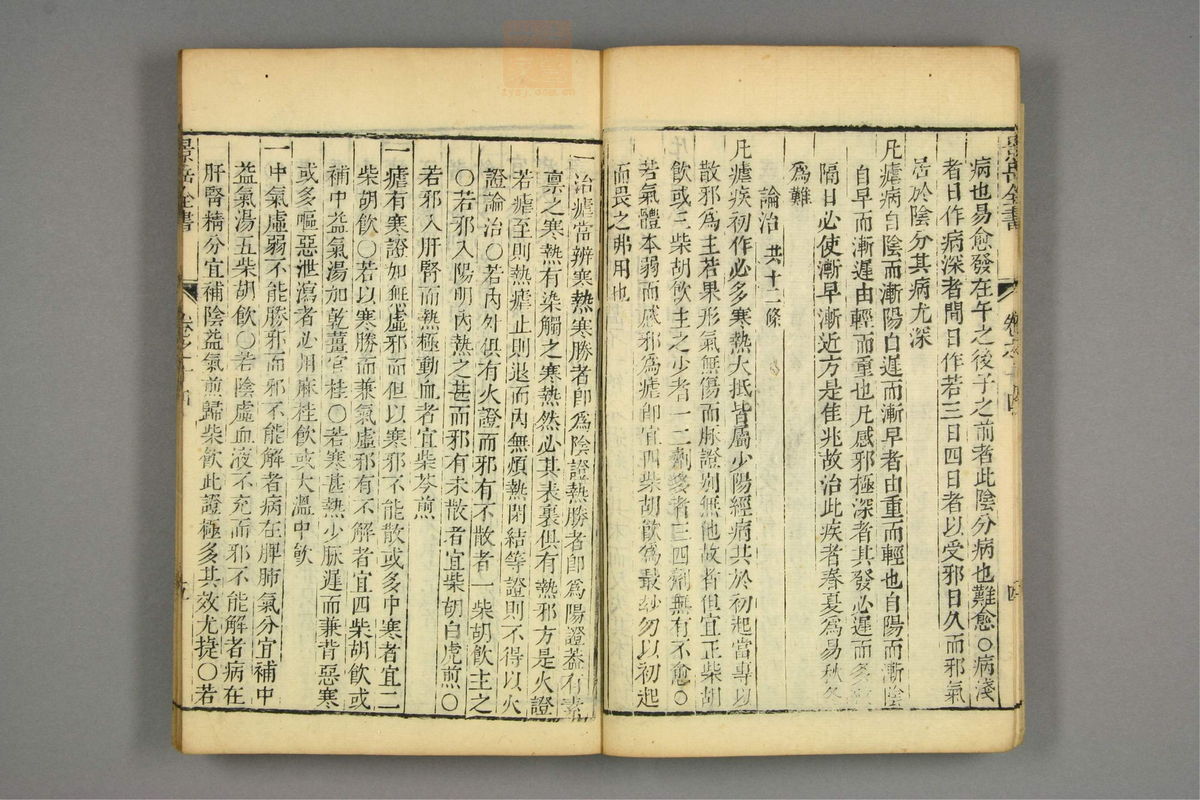 病也易愈發在午之後子之前者此陰分病也難愈〇病淺
者日作病深者間日作若三日四日者以受邪日久而邪氣
居於陰分其病尤深
凡瘧病自陰而漸陽自遲而漸早者由重而輕也自陽而漸陰
自早而漸遲由輕而重也凡感邪極深者其發必遲而多
隔日必使漸早漸近方是佳兆故治此疾者春夏為易秋冬
為難
論治 共十二條
凡瘧疾初作必多寒熱大抵皆屬少陽經病其於初起當專以
散邪為主若果形氣無傷而脉證別無他故者但宜正柴胡
飲或三柴胡飲主之少者一二劑多者三四劑無有不愈〇
若氣體本弱而感邪為瘧即宜四柴胡飲為最妙勿以初起
而畏之弗用也
景岳全書
一治瘧當辨寒熱寒勝者即為陰證熱勝者即為陽證蓋有素
禀之寒熱有染觸之寒熱然必其表裏俱有熱邪方是火證
若瘧至則熱瘧止則退而內無煩熱閉結等證則不得以火
證論治〇若內外俱有火證而邪有不散者一柴胡飲主之
〇若邪入陽明內熱之甚而邪有未散者宜柴胡白虎煎〇
若邪入肝腎而熱極動血者宜柴芩煎
一瘧有寒證如無虛邪而但以寒邪不能散或多中寒者宜二
柴胡飲〇若以寒勝而兼氣虛邪有不解者宜四柴胡飲或
補中益氣湯加乾薑官桂〇若寒甚熱少脉遲而兼背惡寒
或多嘔惡泄瀉者必用麻桂飲或大溫中飲
一中氣虛弱不能勝邪而邪不能解者病在脾肺氣分宜補中
益氣湯五柴胡飲〇若陰虛血液不充而邪不能解者病在
肝腎精分宜補陰益氣煎歸柴飲此證極多其效尤捷〇若
景岳全書